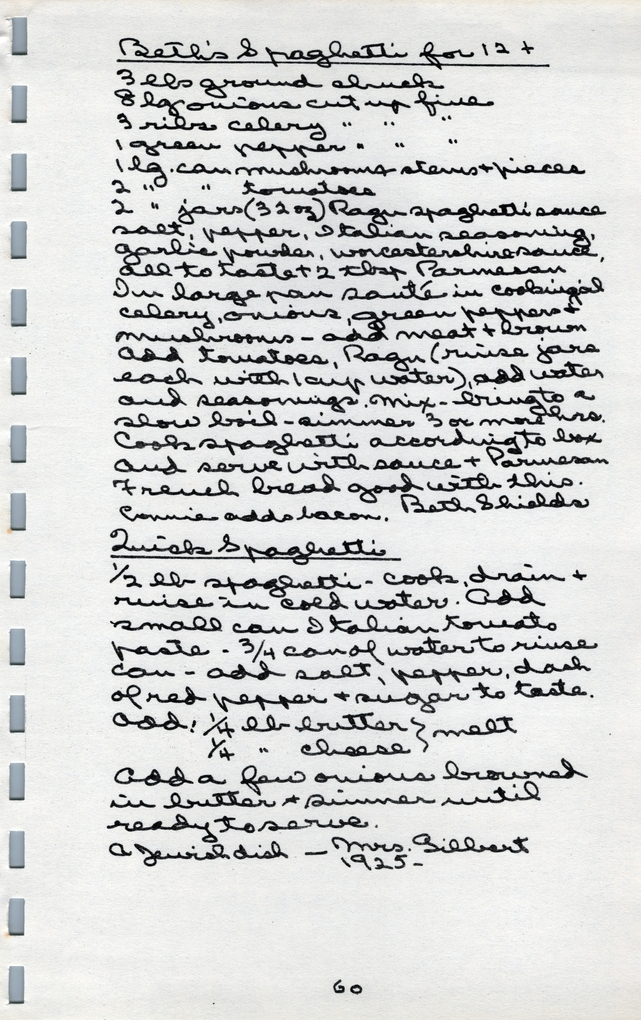 Beth's Spaghetti for 12 +
3 lbs ground chuck
8 lg onions cut up fine
3 ribs celery " " "
1 green pepper " " "
1 lg. can mushrooms stems + pieces
2 " " tomatoes
2 " jars (32 oz) Ragu spaghetti sauce
salt, pepper, Italian seasoning,
garlic powder, worcestershire sauce,
all to taste + 2 tbsp Parmesan
In large pan sauté in cooking oil
celery, onions, green peppers +
mushrooms - add meat + brown
Add tomatoes, Ragu (rinse jars
each with 1 cup water), add water
and seasonings. Mix - bring to a
slow boil - simmer 3 or more hrs.
Cook spaghetti according to box
and serve with sauce + Parmesan
French bread good with this.
Connie adds bacon. Beth Shields
Quick Spaghetti
1/2 lb spaghetti - cook, drain +
rinse in cold water. Add
small can Italian tomato
paste - 3/4 can of water to rinse
can - add salt, pepper, dash
of red pepper + sugar to taste.
Add: 1/4 lb butter } melt
1/4 " cheese }
Add a few onions browned
in butter + simmer until
ready to serve.
A Jewish dish - Mrs. Gilbert
1925-
60